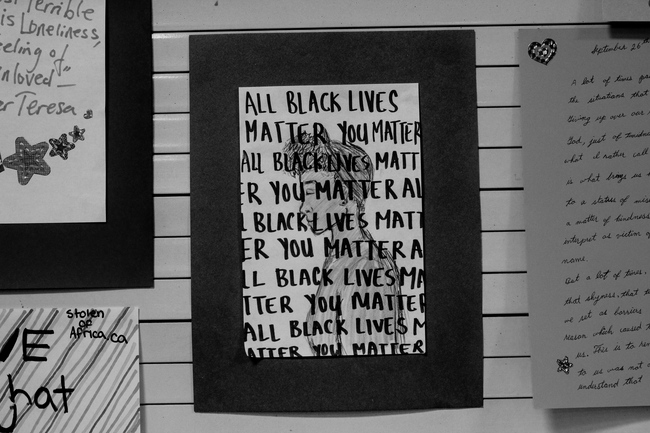 Terrible
is Loneliness,
eeling of
nloved—
er Teresa
ALL BLACK LIVES
MATTER YOU MATTER
ALL BLACK LIVES MATT
ER YOU MATTER AL
L BLACK LIVES MATT
ER YOU MATTER A
LL BLACK LIVES MA
TTER YOU MATTER
ALL BLACK LIVES M
ATTER YOU MATTER
Stolen
of
Africa.ca
E
hat
September 26th
A lot of times
the situations that
Giving up over our
God, just of
what I rather call
is what brings us
to a status of
a matter of kindness
interpret as victim of
name.
But a lot of times.
that shyness, that
we set as barriers
reason which caused
us. This is to
to us was not
understand that